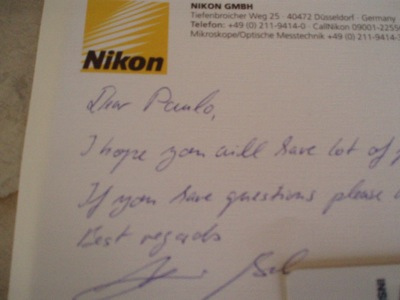 Nikon
NIKON GMBH
Tiefenbroicher Weg 25 · 40472 Düsseldorf · Germany
Telefon: +49 (0) 211-9414-0 · CallNikon 09001-2255
Mikroskope/Optische Messtechnik +49 (0) 211-9414-
Dear Paulo,
I hope you will have lot of
If you have questions please
Best regards
INS